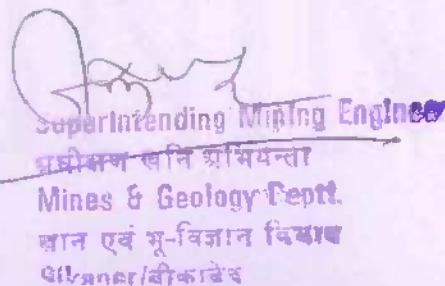 Superintending Mining Engineer
अधीक्षण खनि अभियन्ता
Mines & Geology Deptt.
खान एवं भू-विज्ञान विभाग
Bikaner/बीकानेर